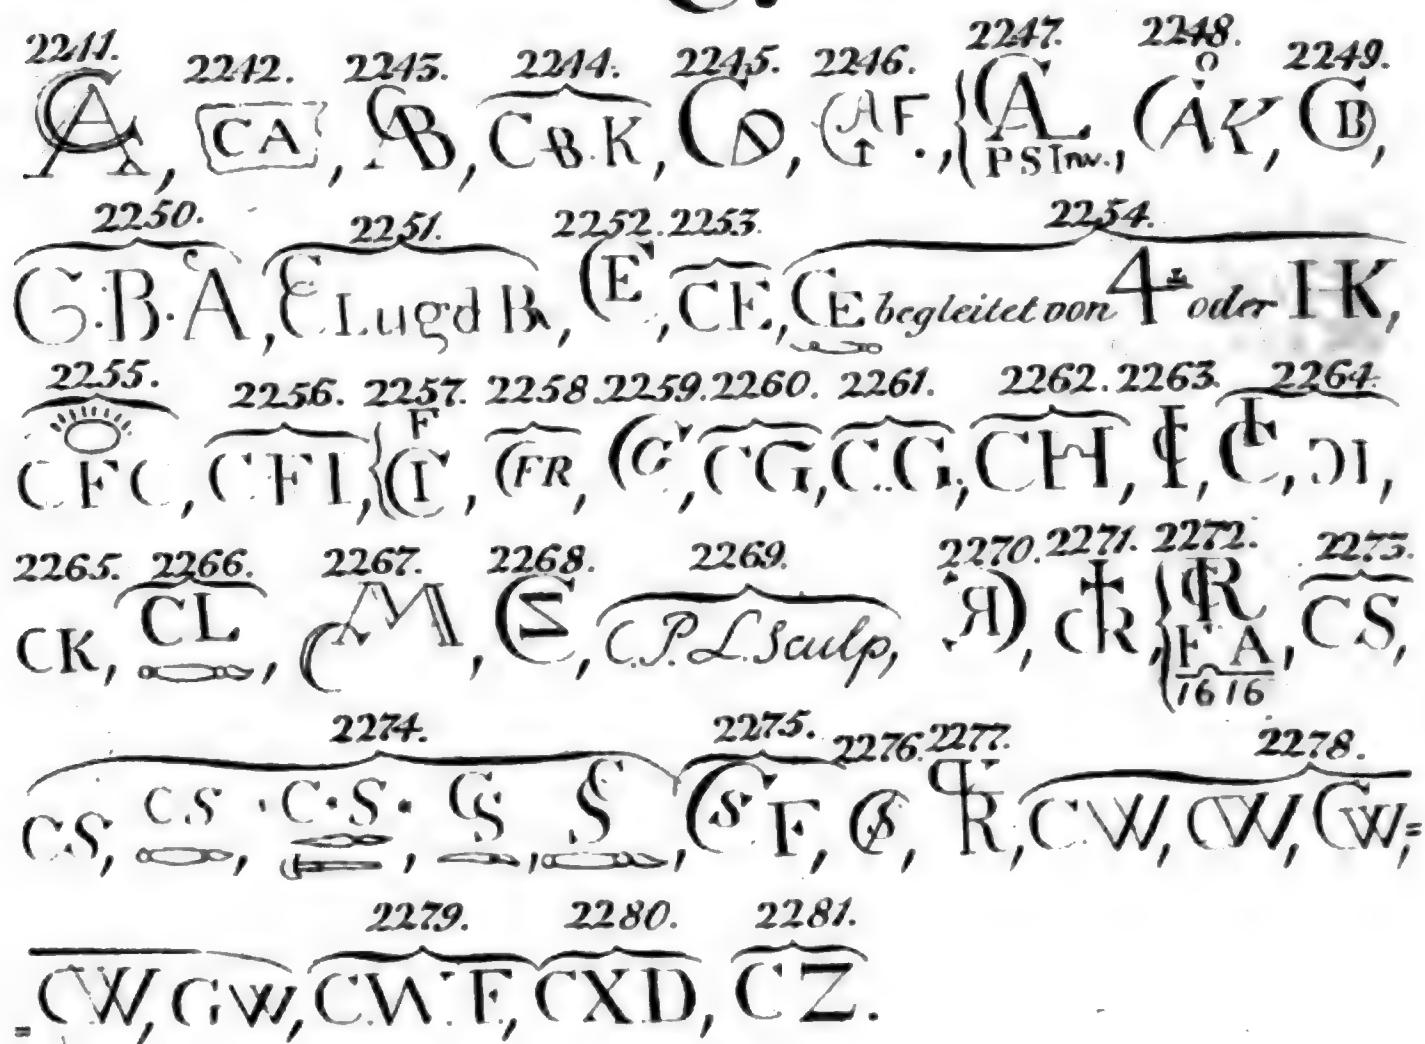 C.
2241. 2242. 2243. 2244. 2245. 2246. 2247. 2248. 2249.
CA, CA, CAB, CB.K, CD, CAF., CAL PS Inv., CÅK, CB,
2250. 2251. 2252. 2253. 2254.
G.B.A, CE Lugd B, CE, CE, CE begleitet von 4 oder IHK,
2255. 2256. 2257. 2258. 2259. 2260. 2261. 2262. 2263. 2264.
CFC, CFI, F CI, CFR, CG, CG, C.G, CH, CI, CI, ƆI,
2265. 2266. 2267. 2268. 2269. 2270. 2271. 2272. 2273.
CK, CL, CM, CZ, C.P.L. Sculp, ЯƆ, CR, CR FA 1616, CS,
2274. 2275. 2276. 2277. 2278.
CS, CS, C.S., CS, CS, CS F, CS, R, CW, CW, CW,=
2279. 2280. 2281.
=CW, GW, C.W.F, CXD, CZ.